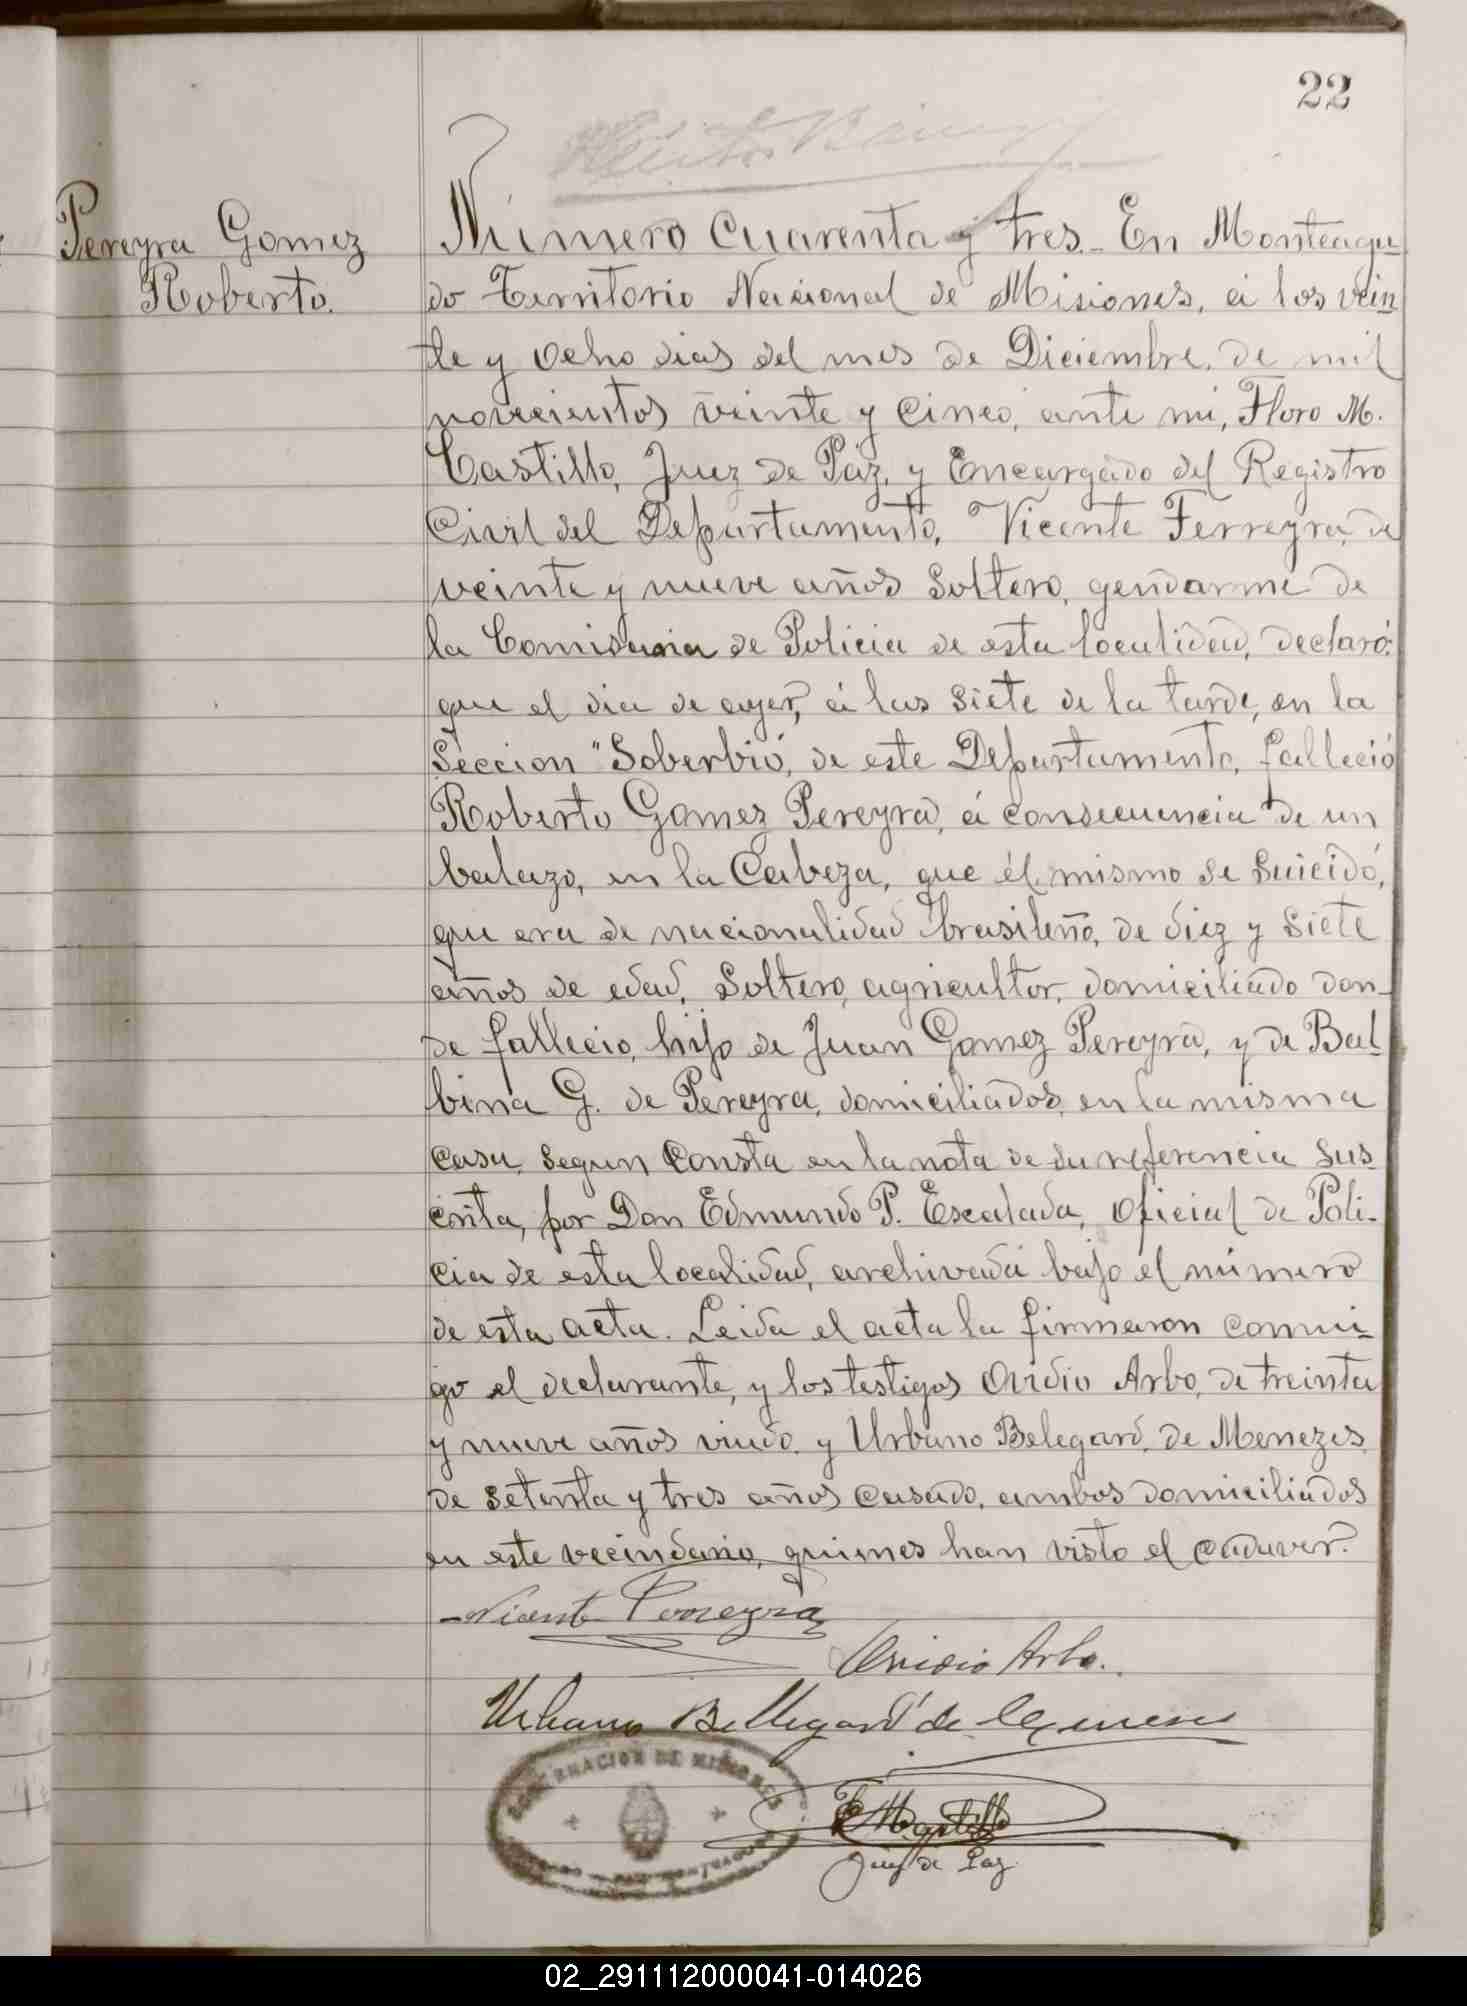 22
Pereyra Gomez
Roberto.
Número Cuarenta y tres.- En Monteagu-
do Territorio Nacional de Misiones, á los vein
te y ocho dias del mes de Diciembre, de mil
novecientos veinte y cinco, ante mi, Floro M.
Castillo, Juez de Paz, y Encargado del Registro
Civil del Departamento, Vicente Ferreyra, de
veinte y nueve años Soltero, gendarme de
la Comisaria de Policia de esta localidad, declaró:
que el dia de ayer, á las siete de la tarde, en la
Seccion "Soberbio", de este Departamento, falleció
Roberto Gomez Pereyra, á consecuencia de un
balazo, en la Cabeza, que él mismo se suicidó,
que era de nacionalidad brasileño, de diez y siete
años de edad, Soltero, agricultor, domiciliado don-
de fallecio, hijo de Juan Gomez Pereyra, y de Bal-
bina G. de Pereyra, domiciliados, en la misma
casa, segun consta en la nota de su referencia sus-
crita, por Don Edmundo P. Escalada, oficial de Poli-
cia de esta localidad, archivada bajo el número
de esta acta. Leida el acta la firmaron conmi-
go el declarante, y los testigos Ovidio Arbo, de treinta
y nueve años viudo, y Urbano Belegard, de Menezes,
de setenta y tres años casado, ambos domiciliados
en este vecindario, quienes han visto el cadaver.
Vicente Ferreyra
Ovidio Arbo.
Urbano Bellegard de Menezes
GOBERNACION DE MISIONES
F M Castillo
Juez de Paz
02_291112000041-014026